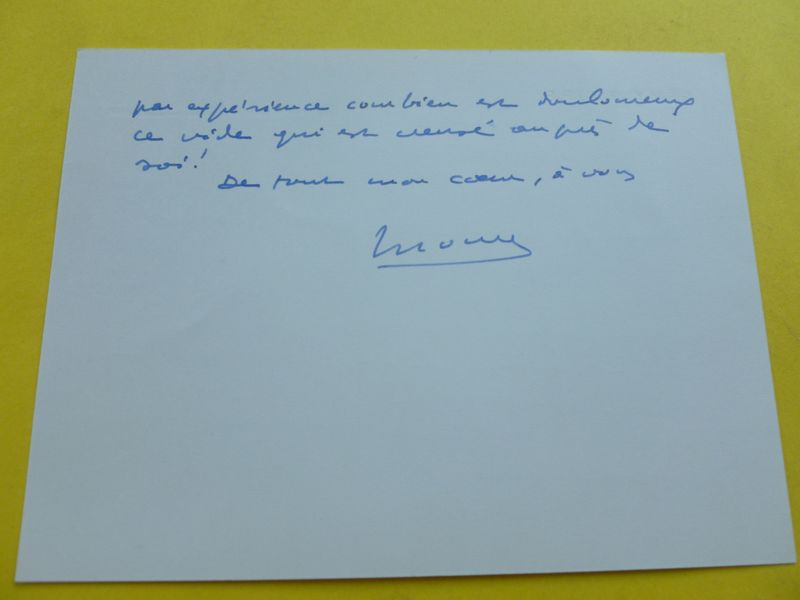 par expérience combien est douloureux
ce vide qui est creusé auprès de
soi !
De tout mon cœur, à vous